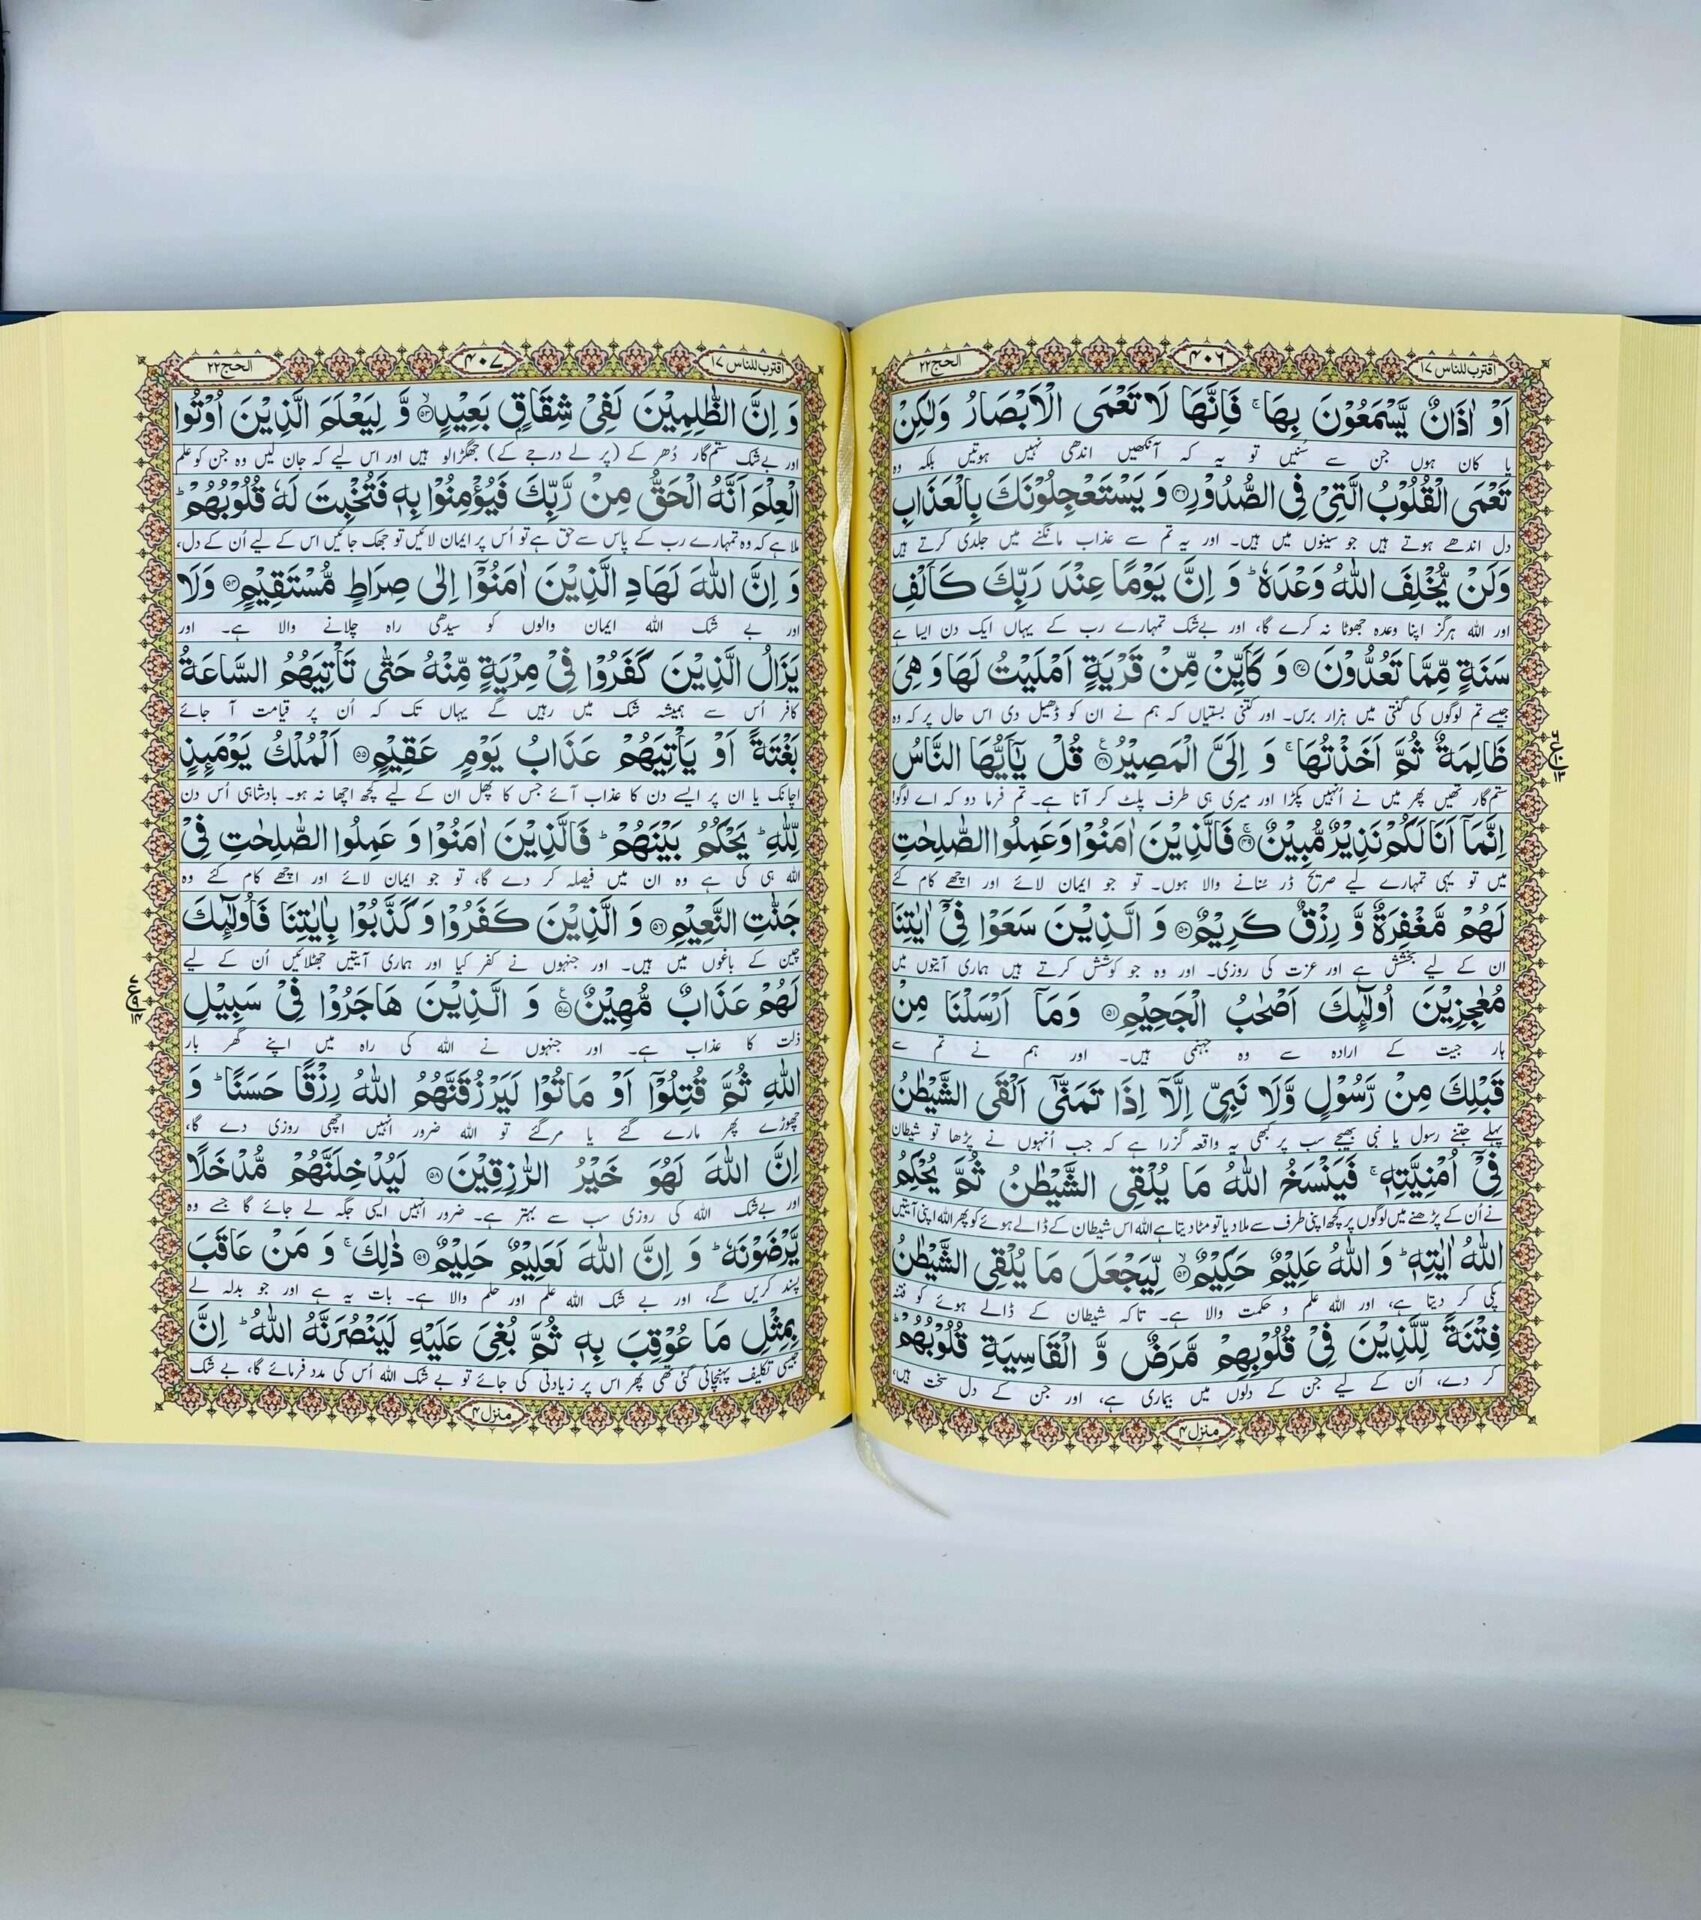 اقترب للناس ۱۷
۴۰۶
الحج ۲۲
اَوْ اٰذَانٌ يَّسْمَعُوْنَ بِهَا ۚ فَاِنَّهَا لَا تَعْمَى الْاَبْصَارُ وَلٰكِنْ
یا کان ہوں جن سے سُنیں تو یہ کہ آنکھیں اندھی نہیں ہوتیں بلکہ وہ
تَعْمَى الْقُلُوْبُ الَّتِيْ فِي الصُّدُوْرِ ﴿۴۶﴾ وَ يَسْتَعْجِلُوْنَكَ بِالْعَذَابِ
دل اندھے ہوتے ہیں جو سینوں میں ہیں۔ اور یہ تم سے عذاب مانگنے میں جلدی کرتے ہیں
وَلَنْ يُّخْلِفَ اللّٰهُ وَعْدَهٗ ؕ وَ اِنَّ يَوْمًا عِنْدَ رَبِّكَ كَاَلْفِ
اور اللہ ہرگز اپنا وعدہ جھوٹا نہ کرے گا، اور بےشک تمہارے رب کے یہاں ایک دن ایسا ہے
سَنَةٍ مِّمَّا تَعُدُّوْنَ ﴿۴۷﴾ وَ كَاَيِّنْ مِّنْ قَرْيَةٍ اَمْلَيْتُ لَهَا وَ هِيَ
جیسے تم لوگوں کی گنتی میں ہزار برس۔ اور کتنی بستیاں کہ ہم نے ان کو ڈھیل دی اس حال پر کہ وہ
ظَالِمَةٌ ثُمَّ اَخَذْتُهَا ۚ وَ اِلَيَّ الْمَصِيْرُ ﴿۴۸﴾ قُلْ يٰۤاَيُّهَا النَّاسُ
ستم گار تھیں پھر میں نے اُنہیں پکڑا اور میری ہی طرف پلٹ کر آنا ہے۔ تم فرما دو کہ اے لوگو!
اِنَّمَاۤ اَنَا لَكُمْ نَذِيْرٌ مُّبِيْنٌ ﴿۴۹﴾ فَالَّذِيْنَ اٰمَنُوْا وَعَمِلُوا الصّٰلِحٰتِ
میں تو یہی تمہارے لیے صریح ڈر سُنانے والا ہوں۔ تو جو ایمان لائے اور اچھے کام کئے
لَهُمْ مَّغْفِرَةٌ وَّ رِزْقٌ كَرِيْمٌ ﴿۵۰﴾ وَ الَّذِيْنَ سَعَوْا فِيْۤ اٰيٰتِنَا
ان کے لیے بخشش ہے اور عزت کی روزی۔ اور وہ جو کوشش کرتے ہیں ہماری آیتوں میں
مُعٰجِزِيْنَ اُولٰٓئِكَ اَصْحٰبُ الْجَحِيْمِ ﴿۵۱﴾ وَمَاۤ اَرْسَلْنَا مِنْ
ہار جیت کے ارادہ سے وہ جہنمی ہیں۔ اور ہم نے تم سے
قَبْلِكَ مِنْ رَّسُوْلٍ وَّلَا نَبِيٍّ اِلَّاۤ اِذَا تَمَنّٰۤى اَلْقَى الشَّيْطٰنُ
پہلے جتنے رسول یا نبی بھیجے سب پر کبھی یہ واقعہ گزرا ہے کہ جب اُنہوں نے پڑھا تو شیطان
فِيْۤ اُمْنِيَّتِهٖ ۚ فَيَنْسَخُ اللّٰهُ مَا يُلْقِي الشَّيْطٰنُ ثُمَّ يُحْكِمُ
نے اُن کے پڑھنے میں لوگوں پر کچھ اپنی طرف سے ملا دیا تو مٹا دیتا ہے اللہ اس شیطان کے ڈالے ہوئے کو پھر اللہ اپنی آیتیں
اللّٰهُ اٰيٰتِهٖ ؕ وَ اللّٰهُ عَلِيْمٌ حَكِيْمٌ ﴿۵۲﴾ لِّيَجْعَلَ مَا يُلْقِي الشَّيْطٰنُ
پکی کر دیتا ہے، اور اللہ علم و حکمت والا ہے۔ تاکہ شیطان کے ڈالے ہوئے کو فتنہ
فِتْنَةً لِّلَّذِيْنَ فِيْ قُلُوْبِهِمْ مَّرَضٌ وَّ الْقَاسِيَةِ قُلُوْبُهُمْ ؕ
کر دے، اُن کے لیے جن کے دلوں میں بیماری ہے، اور جن کے دل سخت ہیں،
منزل ۴
اقترب للناس ۱۷
۴۰۷
الحج ۲۲
وَ اِنَّ الظّٰلِمِيْنَ لَفِيْ شِقَاقٍ بَعِيْدٍ ﴿۵۳﴾ وَّ لِيَعْلَمَ الَّذِيْنَ اُوْتُوا
اور بےشک ستم گار دُھر کے (پرلے درجے کے) جھگڑالو ہیں اور اس لیے کہ جان لیں وہ جن کو علم
الْعِلْمَ اَنَّهُ الْحَقُّ مِنْ رَّبِّكَ فَيُؤْمِنُوْا بِهٖ فَتُخْبِتَ لَهٗ قُلُوْبُهُمْ ؕ
ملا ہے کہ وہ تمہارے رب کے پاس سے حق ہے تو اُس پر ایمان لائیں تو جھک جائیں اس کے لیے اُن کے دل،
وَ اِنَّ اللّٰهَ لَهَادِ الَّذِيْنَ اٰمَنُوْۤا اِلٰى صِرَاطٍ مُّسْتَقِيْمٍ ﴿۵۴﴾ وَلَا
اور بے شک اللہ ایمان والوں کو سیدھی راہ چلانے والا ہے۔ اور
يَزَالُ الَّذِيْنَ كَفَرُوْا فِيْ مِرْيَةٍ مِّنْهُ حَتّٰى تَاْتِيَهُمُ السَّاعَةُ
کافر اُس سے ہمیشہ شک میں رہیں گے یہاں تک کہ اُن پر قیامت آ جائے
بَغْتَةً اَوْ يَاْتِيَهُمْ عَذَابُ يَوْمٍ عَقِيْمٍ ﴿۵۵﴾ اَلْمُلْكُ يَوْمَئِذٍ
اچانک یا ان پر ایسے دن کا عذاب آئے جس کا پھل ان کے لیے کچھ اچھا نہ ہو۔ بادشاہی اُس دن
لِّلّٰهِ ؕ يَحْكُمُ بَيْنَهُمْ ؕ فَالَّذِيْنَ اٰمَنُوْا وَ عَمِلُوا الصّٰلِحٰتِ فِيْ
اللہ ہی کی ہے وہ ان میں فیصلہ کر دے گا، تو جو ایمان لائے اور اچھے کام کئے وہ
جَنّٰتِ النَّعِيْمِ ﴿۵۶﴾ وَ الَّذِيْنَ كَفَرُوْا وَ كَذَّبُوْا بِاٰيٰتِنَا فَاُولٰٓئِكَ
چین کے باغوں میں ہیں۔ اور جنہوں نے کفر کیا اور ہماری آیتیں جھٹلائیں اُن کے لیے
لَهُمْ عَذَابٌ مُّهِيْنٌ ﴿۵۷﴾ وَ الَّذِيْنَ هَاجَرُوْا فِيْ سَبِيْلِ
ذلت کا عذاب ہے۔ اور جنہوں نے اللہ کی راہ میں اپنے گھر بار
اللّٰهِ ثُمَّ قُتِلُوْۤا اَوْ مَاتُوْا لَيَرْزُقَنَّهُمُ اللّٰهُ رِزْقًا حَسَنًا ؕ وَ
چھوڑے پھر مارے گئے یا مرگئے تو اللہ ضرور انہیں اچھی روزی دے گا،
اِنَّ اللّٰهَ لَهُوَ خَيْرُ الرّٰزِقِيْنَ ﴿۵۸﴾ لَيُدْخِلَنَّهُمْ مُّدْخَلًا
اور بےشک اللہ کی روزی سب سے بہتر ہے۔ ضرور انہیں ایسی جگہ لے جائے گا جسے وہ
يَّرْضَوْنَهٗ ؕ وَ اِنَّ اللّٰهَ لَعَلِيْمٌ حَلِيْمٌ ﴿۵۹﴾ ذٰلِكَ ۚ وَ مَنْ عَاقَبَ
پسند کریں گے، اور بے شک اللہ علم اور حلم والا ہے۔ بات یہ ہے اور جو بدلہ لے
بِمِثْلِ مَا عُوْقِبَ بِهٖ ثُمَّ بُغِيَ عَلَيْهِ لَيَنْصُرَنَّهُ اللّٰهُ ؕ اِنَّ
جیسی تکلیف پہنچائی گئی تھی پھر اس پر زیادتی کی جائے تو بے شک اللہ اُس کی مدد فرمائے گا، بے شک
منزل ۴